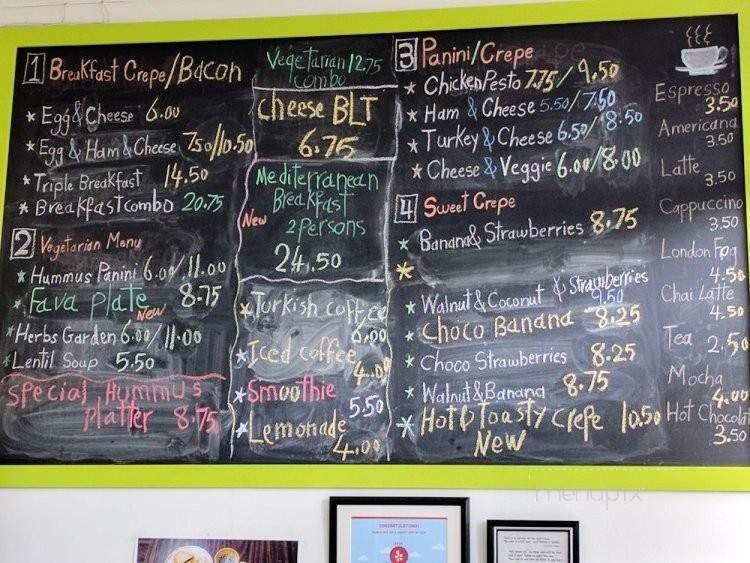 1 Breakfast Crepe/Bacon
* Egg & Cheese 6.00
* Egg & Ham & Cheese 7.50/10.50
* Triple Breakfast 14.50
* Breakfast combo 20.75
2 Vegetarian Menu
* Hummus Panini 6.00/11.00
* Fava plate New 8.75
* Herbs Garden 6.00/11.00
* Lentil Soup 5.50
Special Hummus
Platter 8.75
Vegetarian 12.75
combo
Cheese BLT
6.75
Mediterranean
Breakfast
New 2 persons
24.50
* Turkish coffee
6.00
* Iced coffee
4.00
* Smoothie
5.50
* Lemonade
4.00
3 Panini/Crepe
* Chicken Pesto 7.75/9.50
* Ham & Cheese 5.50/7.50
* Turkey & Cheese 6.50/8.50
* Cheese & Veggie 6.00/8.00
4 Sweet Crepe
* Banana & Strawberries 8.75
*
* Walnut & Coconut & Strawberries
9.50
* Choco Banana 8.25
* Choco Strawberries 8.25
* Walnut & Banana 8.75
* Hot & Toasty Crepe 10.50
New
Espresso
3.50
Americana
3.50
Latte
3.50
Cappuccino
3.50
London Fog
4.50
Chai Latte
4.50
Tea 2.50
Mocha
4.00
Hot Chocolat
3.50
menupix
CONGRATULATIONS!